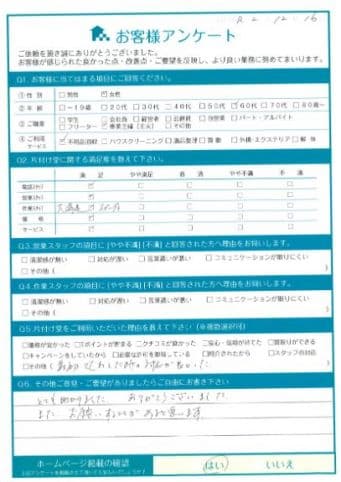 R2.12.16
お客様アンケート
ご依頼を頂き誠にありがとうございました。
お客様が感じられた良かった点・改善点・ご要望を反映し、より良い業務に努めてまいります。
Q1. お客様に当てはまる項目にご回答ください。
①性別 □男性 ☑女性
②年齢 □~19歳 □20代 □30代 □40代 □50代 ☑60代 □70代 □80歳~
③ご職業 □学生 □会社員 □経営者 □公務員 □自営業 □パート・アルバイト
□フリーター ☑専業主婦(主夫) □その他
④ご利用サービス ☑不用品回収 □ハウスクリーニング □遺品整理 □買取 □外構・エクステリア □解体
Q2. 片付け堂に関する満足度を教えて下さい。
満足 やや満足 普通 やや不満 不満
電話(ﾊ)
営業(ﾊ)
作業(ﾊ)
価格
サービス
Q3. 営業スタッフの項目に [やや不満] [不満] と回答された方へ理由をお伺いします。
□清潔感が無い □対応が遅い □言葉遣いが悪い □コミュニケーションが取りにくい
□その他(
Q4. 作業スタッフの項目に [やや不満] [不満] と回答された方へ理由をお伺いします。
□清潔感が無い □対応が遅い □言葉遣いが悪い □コミュニケーションが取りにくい
□その他(
Q5. 片付け堂をご利用いただいた理由を教えて下さい(※複数選択可)
□価格が安かった □Tポイントが貯まる □クチコミが良かった □安心・信頼が持てた □買取りができる
□キャンペーンをしていたから □必要な許可を取得している □紹介されたから □スタッフの対応
Q6. その他ご意見・ご要望がありましたらご自由にお書き下さい
とても助かりました。ありがとうございました。
また お願いすることがあると思います。
ホームページ掲載の確認
はい いいえ